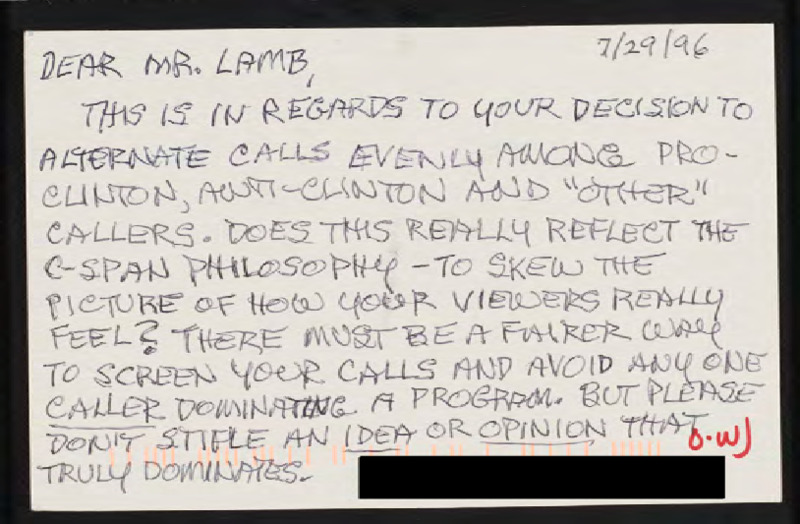 7/29/96
DEAR MR. LAMB,
THIS IS IN REGARDS TO YOUR DECISION TO
ALTERNATE CALLS EVENLY AMONG PRO-
CLINTON, ANTI-CLINTON AND "OTHER"
CALLERS. DOES THIS REALLY REFLECT THE
C-SPAN PHILOSOPHY - TO SKEW THE
PICTURE OF HOW YOUR VIEWERS REALLY
FEEL? THERE MUST BE A FAIRER WAY
TO SCREEN YOUR CALLS AND AVOID ANY ONE
CALLER DOMINATING A PROGRAM. BUT PLEASE
DON'T STIFLE AN IDEA OR OPINION THAT
TRULY DOMINATES.